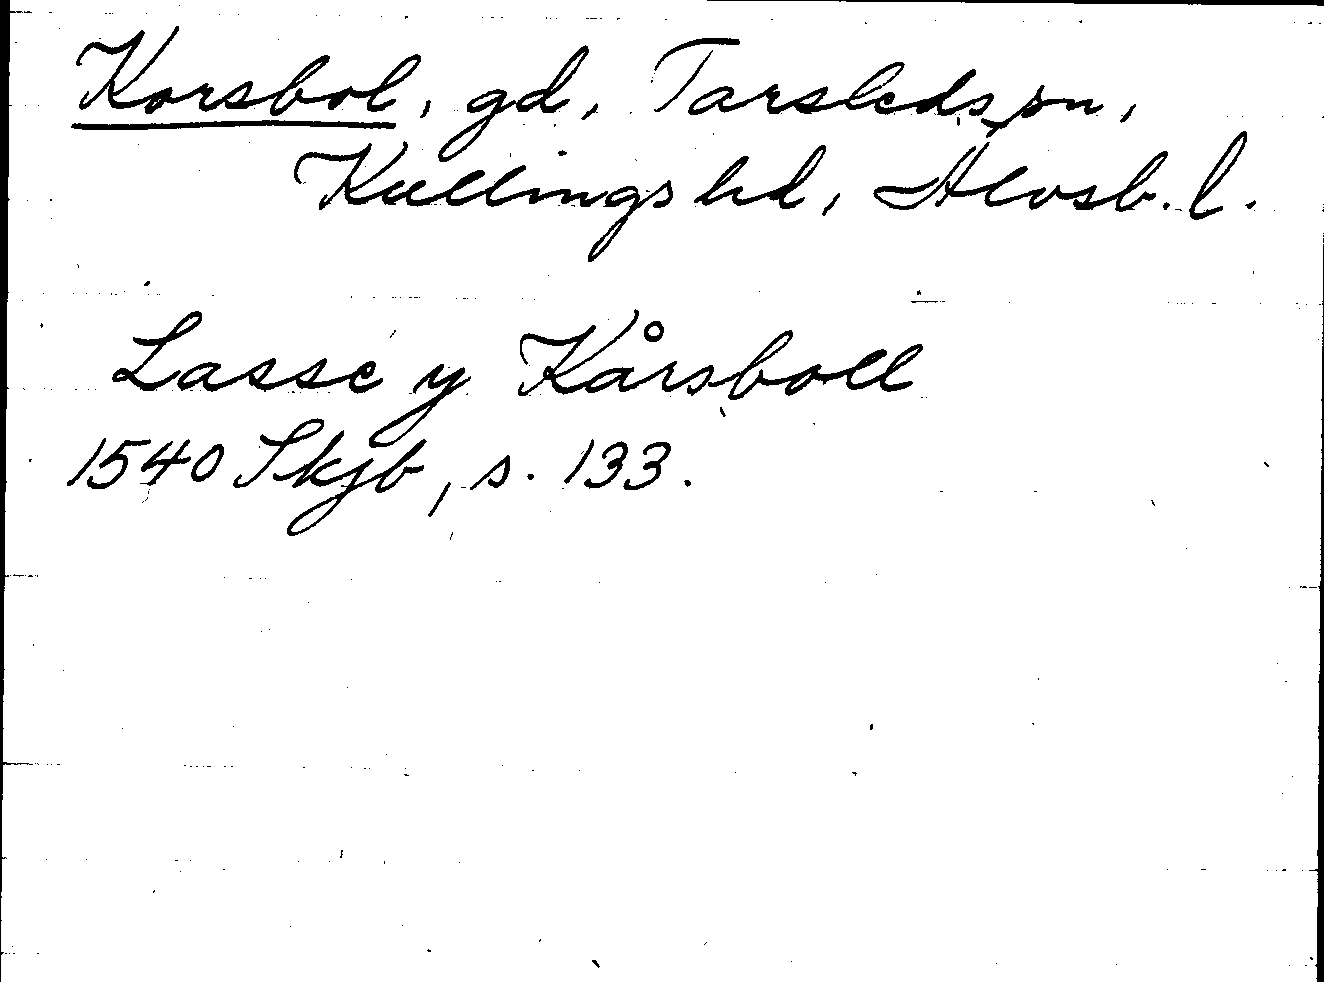 Korsbol, gd, Tarsleds sn,
Kullings hd, Älvsb. l.
Lasse y Kårsboll
1540 Skjb, s. 133.